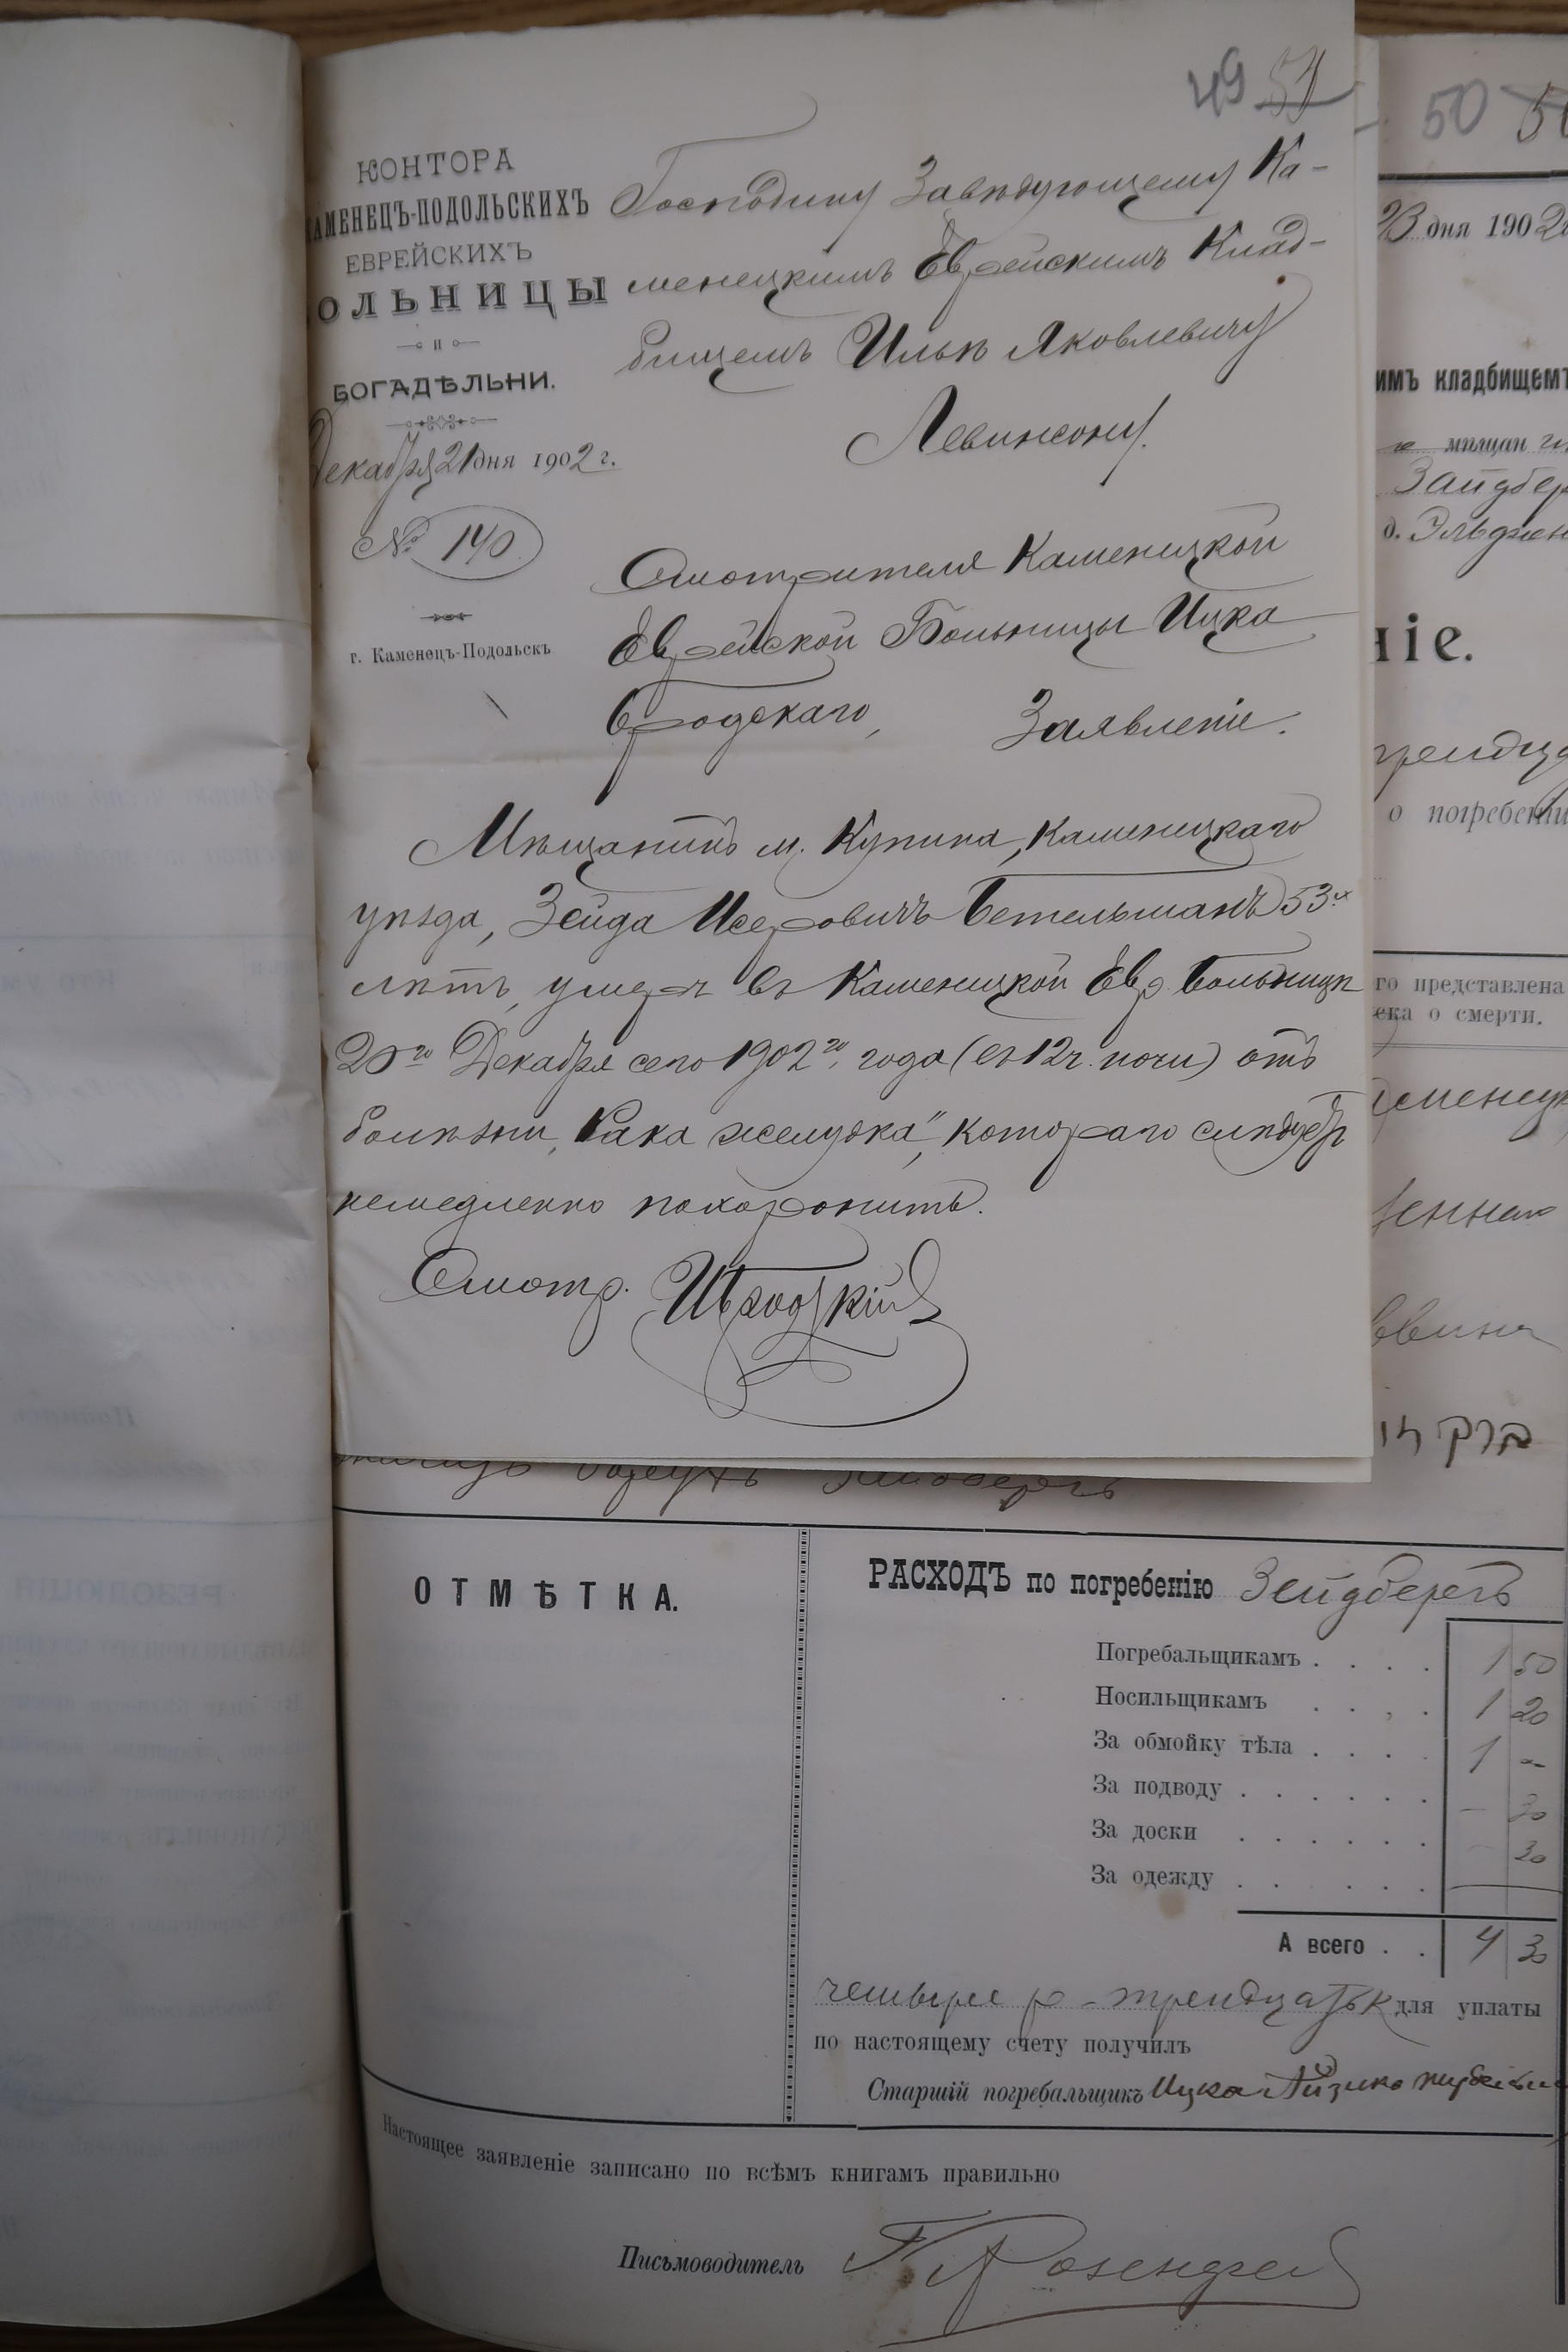 49 51
КОНТОРА
КАМЕНЕЦЪ-ПОДОЛЬСКИХЪ
ЕВРЕЙСКИХЪ
ОЛЬНИЦЫ
и
БОГАДѢЛЬНИ.
Декабря 21 дня 1902 г.
№ 140
г. Каменецъ-Подольскъ
Господину Завѣдующему Ка-
менецкимъ Еврейскимъ Клад-
бищемъ Ильѣ Яковлевичу
Левинсону.
Смотрителя Каменецкой
Еврейской Больницы Ицка
Бродскаго,
Заявленіе.
Мѣщанинъ м. Купина, Каменецкаго
уѣзда, Зейда Исеровичъ Бетельманъ 53х
лѣтъ, умеръ въ Каменецкой Евр. Больницѣ
20го Декабря сего 1902го года (въ 12 ч. ночи) отъ
болѣзни „Рака желудка", котораго слѣдуетъ
немедленно похоронить.
Смотр. ИБродскій
50
дня 1902
имъ кладбищемъ
мѣщан
Зайдбер
д.
ніе.
о погребеніи
го представлена
о смерти.
ОТМѢТКА.
РАСХОДЪ по погребенію Зейдбергъ
Погребальщикамъ . . . . 1 50
Носильщикамъ . . . . 1 20
За обмойку тѣла . . . . 1 —
За подводу . . . . . . — 30
За доски . . . . . . 30
За одежду . . . . . .
А всего . . 4 30
четыре р - тридцать к для уплаты
по настоящему счету получилъ
Старшій погребальщикъ Ицко Айзико
Настоящее заявленіе записано по всѣмъ книгамъ правильно
Письмоводитель